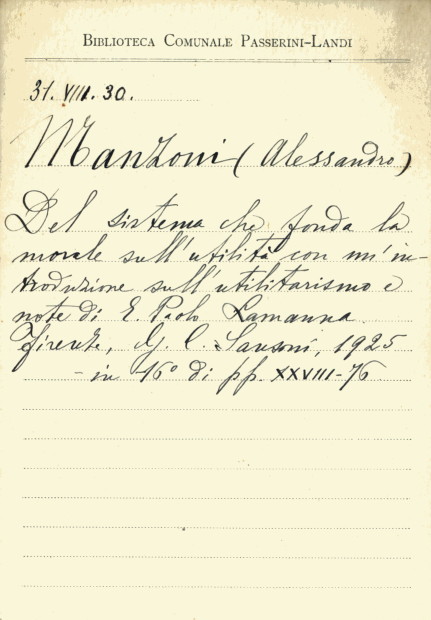 BIBLIOTECA COMUNALE PASSERINI-LANDI
31. VIII. 30.
Manzoni (Alessandro)
Del sistema che fonda la
morale sull'utilità con un'in-
troduzione sull'utilitarismo e
note di E. Paolo Lamanna
Firenze, G. C. Sansoni, 1925
- in 16° di pp. XXVIII-76